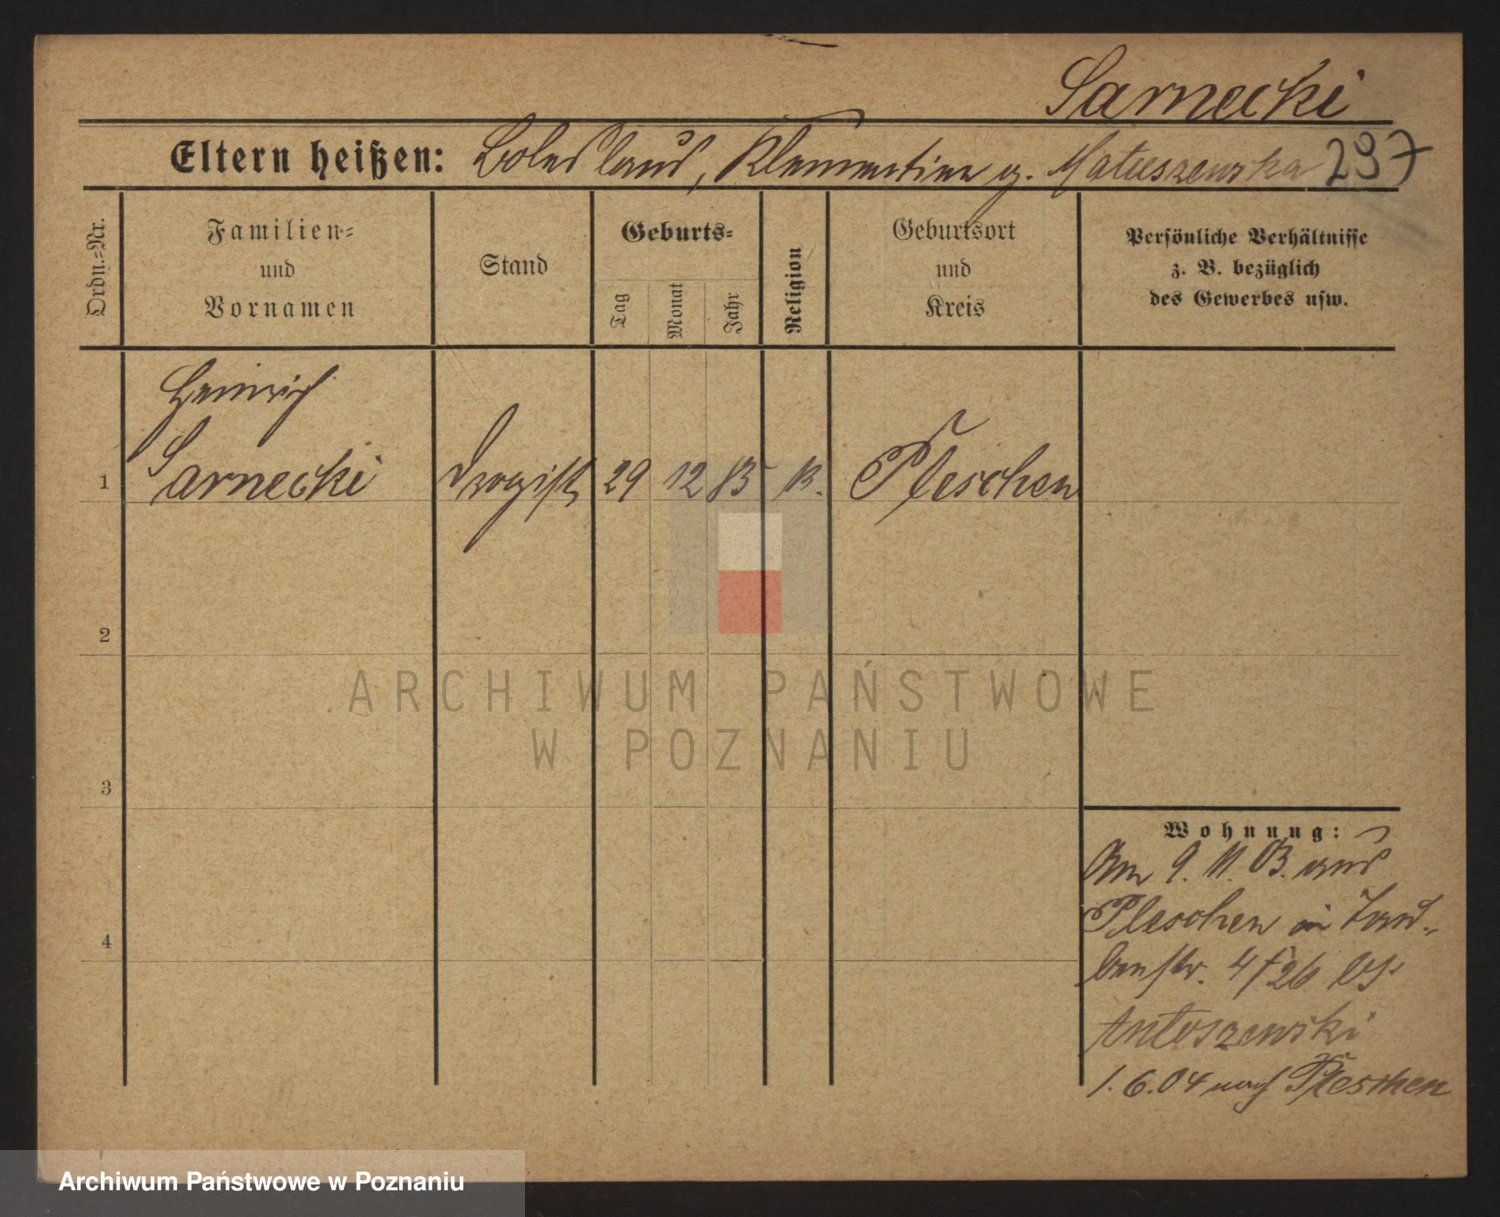 Sarnecki
Eltern heißen: Boleslaus, Klementine g. Matuszewska 297
Ordn.=Nr.
Familien=
und
Vornamen
Stand
Geburts=
Tag
Monat
Jahr
Religion
Geburtsort
und
Kreis
Persönliche Verhältnisse
z. B. bezüglich
des Gewerbes usw.
Heinrich
1 Sarnecki Drogist 29 12 85 k. Pleschen
2
ARCHIWUM PAŃSTWOWE
W POZNANIU
3
Wohnung:
Am 9. 11. 03. aus
Pleschen in
4
benstr. 4 f 26 bs.
Antoszewski
1. 6. 04 nach Pleschen
Archiwum Państwowe w Poznaniu